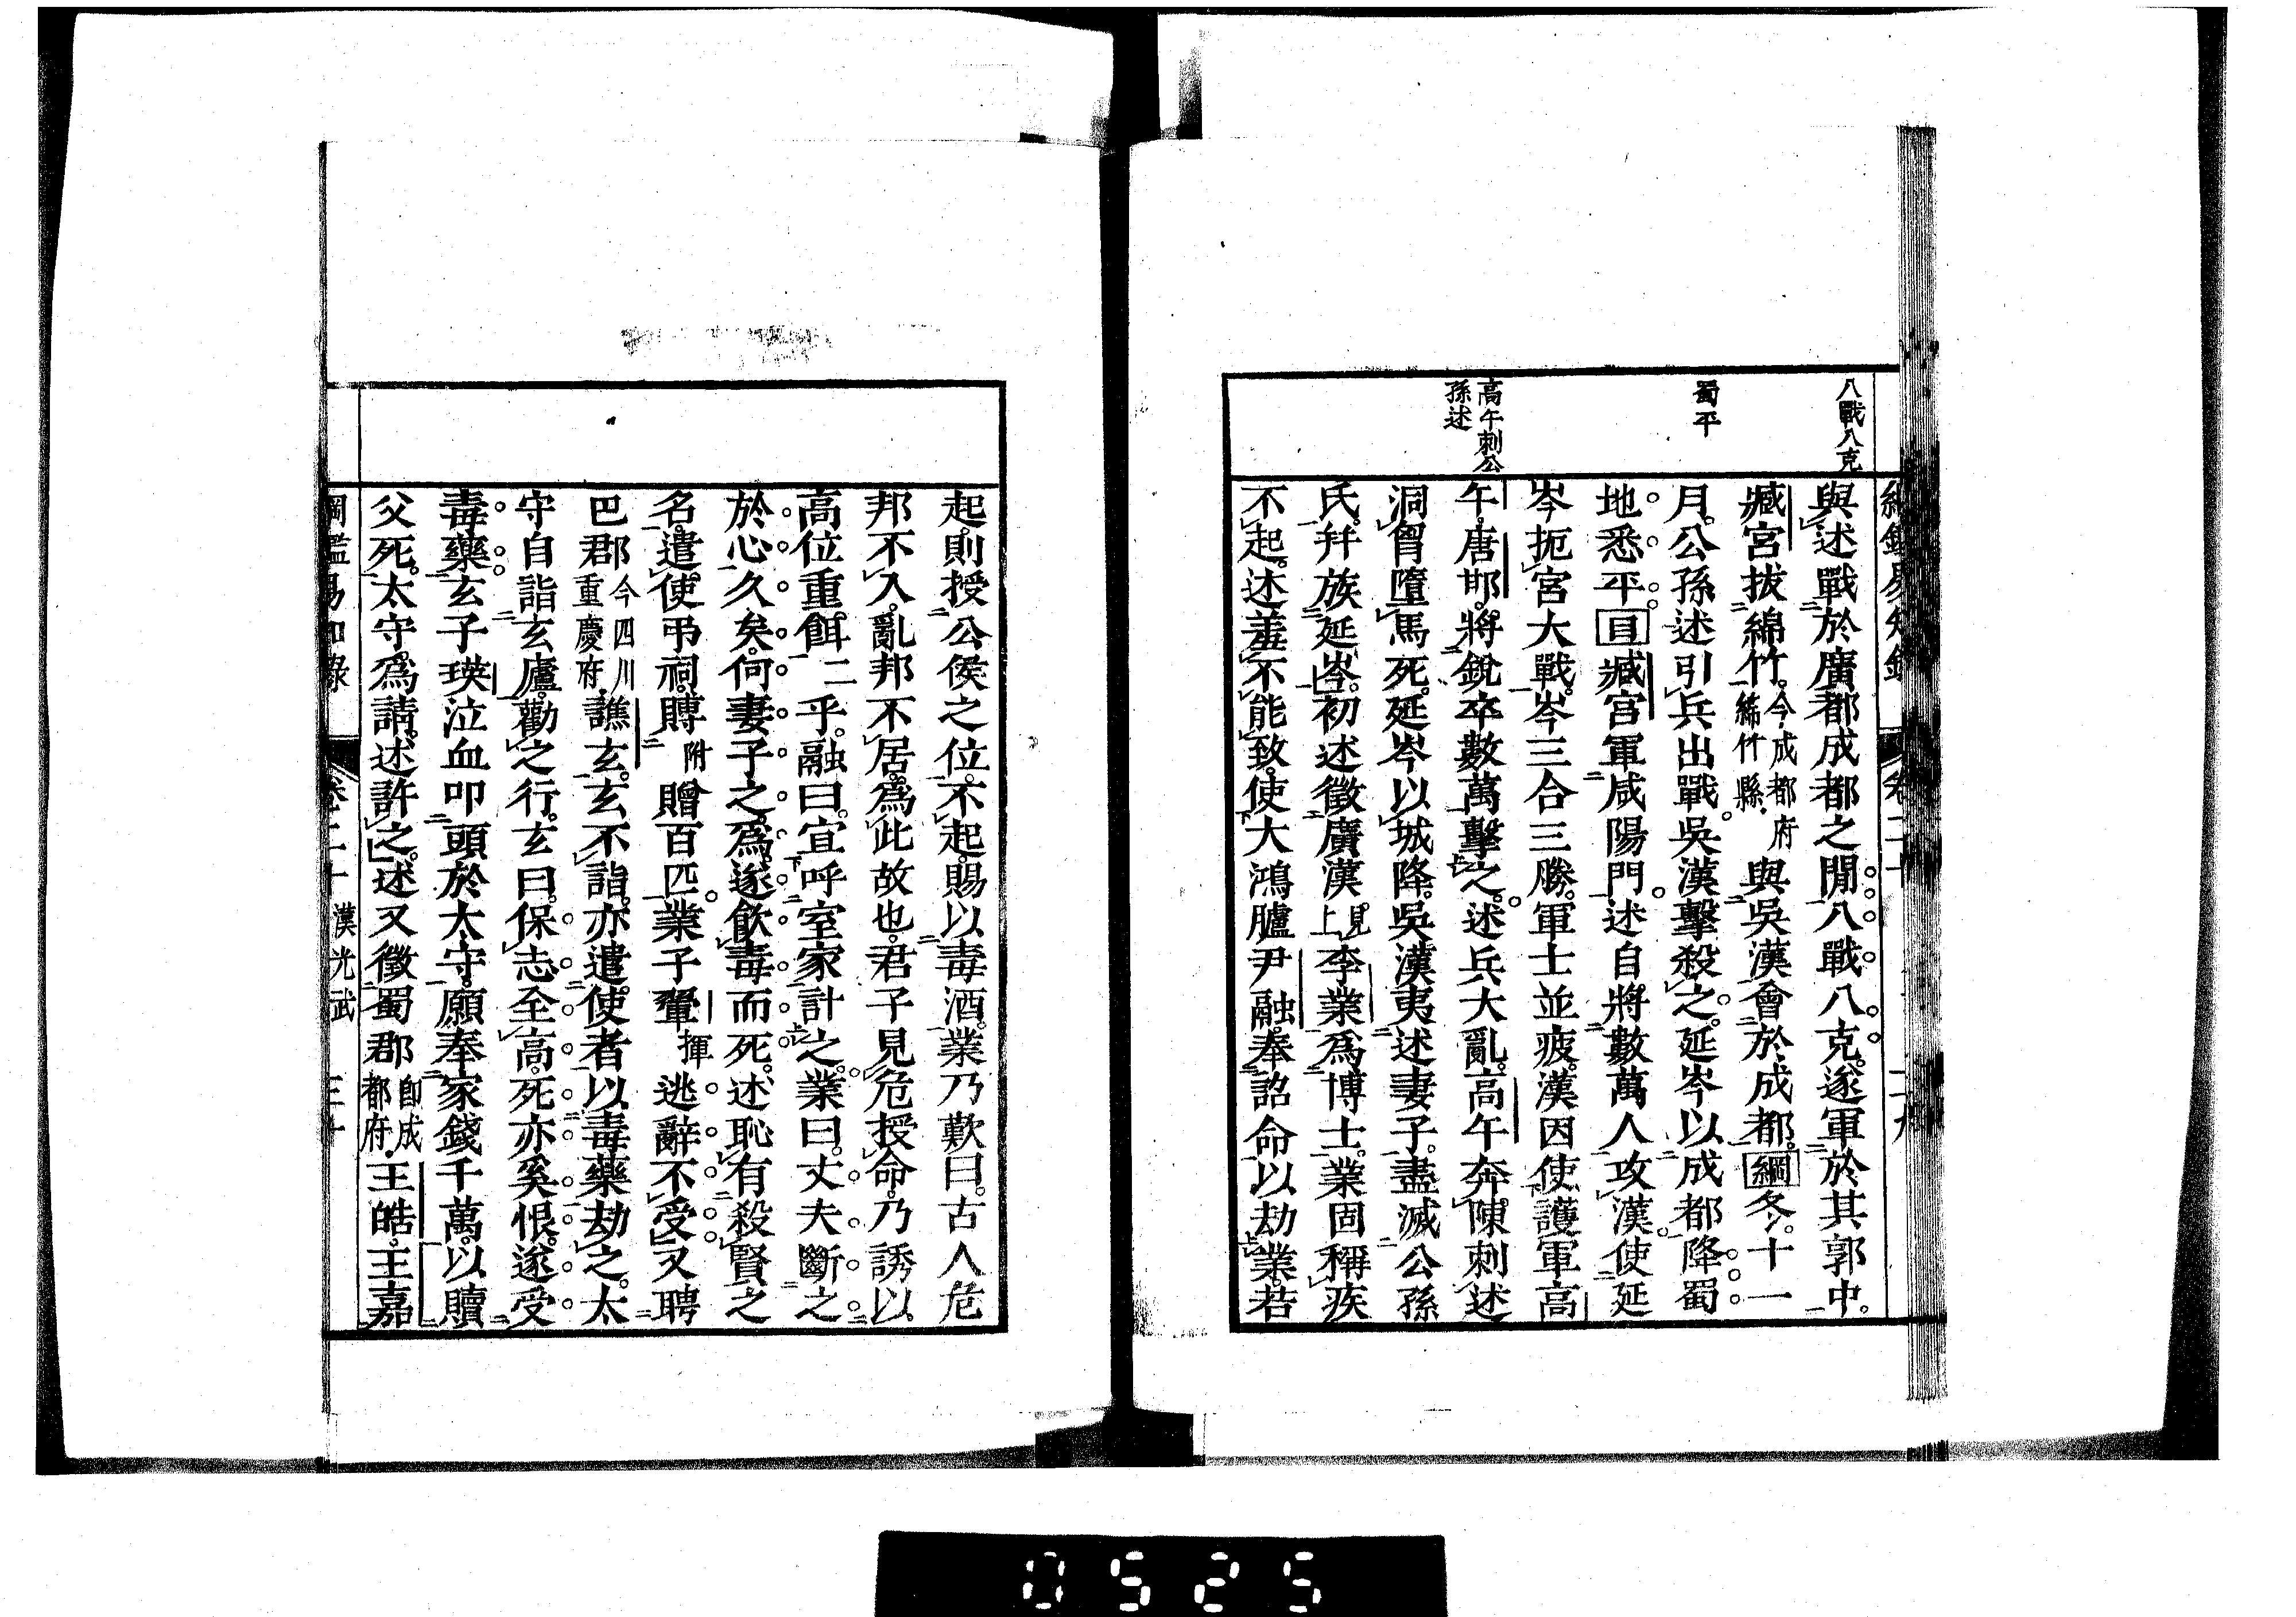 八戰八克
蜀平
高午刺公
孫述
與述戰於廣都成都之閒八戰八克。遂軍於其郭中。
臧宮拔綿竹。今成都府綿竹縣。與吳漢會於成都。綱冬。十一
月。公孫述引兵出戰。吳漢擊殺之。延岑以成都降。蜀
地悉平。目臧宮軍咸陽門。述自將數萬人攻漢。使延
岑扼宮大戰。岑三合三勝。軍士並疲。漢因使護軍高
午。唐邯。將銳卒數萬擊之。述兵大亂。高午奔陳刺述
洞胷墮馬死。延岑以城降。吳漢夷述妻子。盡滅公孫
氏。幷族延岑。初述徵廣漢見上李業爲博士。業固稱疾
不起。述羞不能致。使大鴻臚尹融。奉詔命以劫業。若
起。則授公侯之位。不起。賜以毒酒。業乃歎曰。古人危
邦不入。亂邦不居。爲此故也。君子見危授命。乃誘以
高位重餌二乎。融曰。宜呼室家計之。業曰。丈夫斷之
於心久矣。何妻子之爲。遂飮毒而死。述恥有殺賢之
名。遣使弔祠。賻附贈百匹。業子翬揮逃辭不受。又聘
巴郡今四川重慶府。譙玄。玄不詣。亦遣使者以毒藥劫之。太
守自詣玄廬。勸之行。玄曰。保志至高。死亦奚恨。遂受
毒藥。玄子瑛泣血叩頭於太守。願奉家錢千萬。以贖
父死。太守爲請。述許之。述又徵蜀郡卽成都府。王皓。王嘉
綱鑑易知錄 卷二十 漢光武